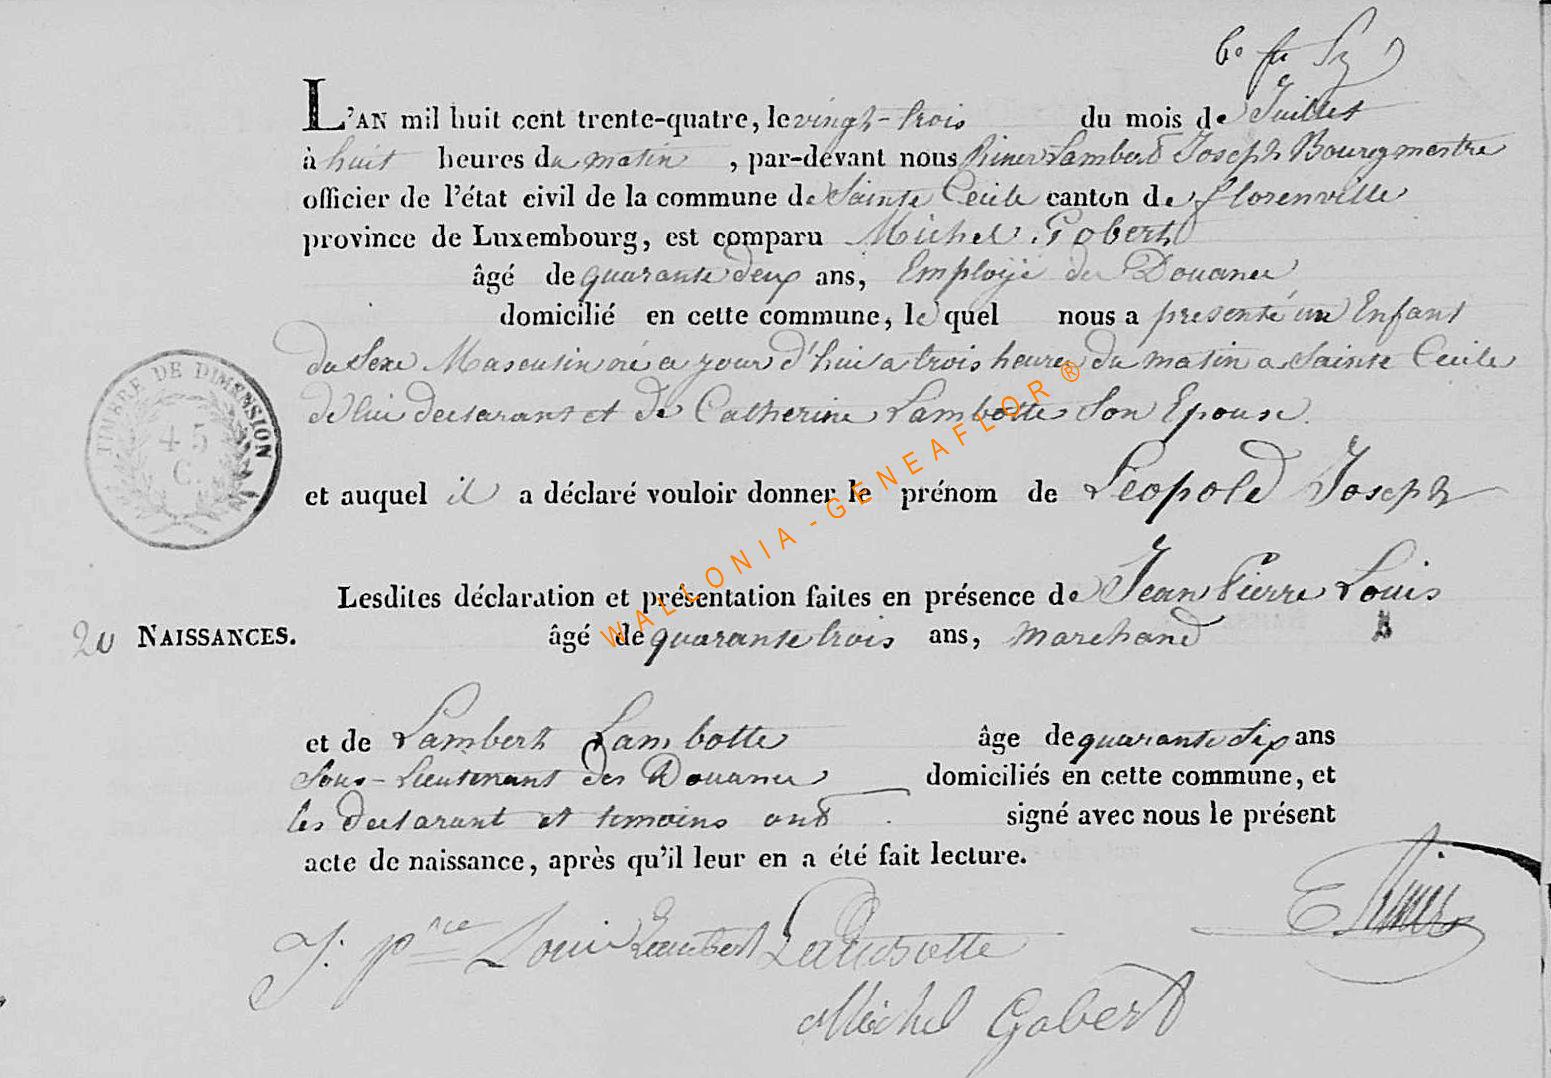 6e
L'AN mil huit cent trente-quatre, le vingt-trois du mois de Juillet
à huit heures du matin, par-devant nous Lambert Joseph Bourgmestre
officier de l'état civil de la commune de Sainte Cecile canton de florenville
province de Luxembourg, est comparu Michel Gobert
âgé de quarante deux ans, Employé des Douanes
domicilié en cette commune, lequel nous a presenté un Enfant
du Sexe Masculin né ce jour d'hui a trois heures du matin a Sainte Cecile
de lui declarant et de Catherine Lambotte Son Epouse.
et auquel il a déclaré vouloir donner le prénom de Léopold Joseph
Lesdites déclaration et présentation faites en présence de Jean Pierre Louis
20 NAISSANCES. âgé de quarante trois ans, marchand
et de Lambert Lambotte âge de quarante Six ans
Sous-Lieutenant des Douanes domiciliés en cette commune, et
les declarant et temoins ont signé avec nous le présent
acte de naissance, après qu'il leur en a été fait lecture.
J. Prre Louis Lambert Lambotte
Michel Gobert
TIMBRE DE DIMENSION
45
C.
WALLONIA-GENEAFLOR ®